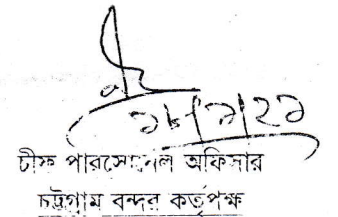 ২৮/৯/২১
চীফ পারসোনেল অফিসার
চট্টগ্রাম বন্দর কর্তৃপক্ষ